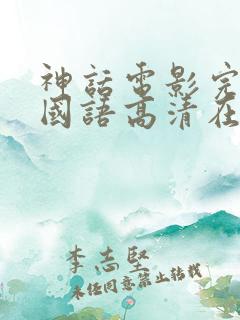 神話電影完
國語高清在
李志堅
未經同意禁止转载